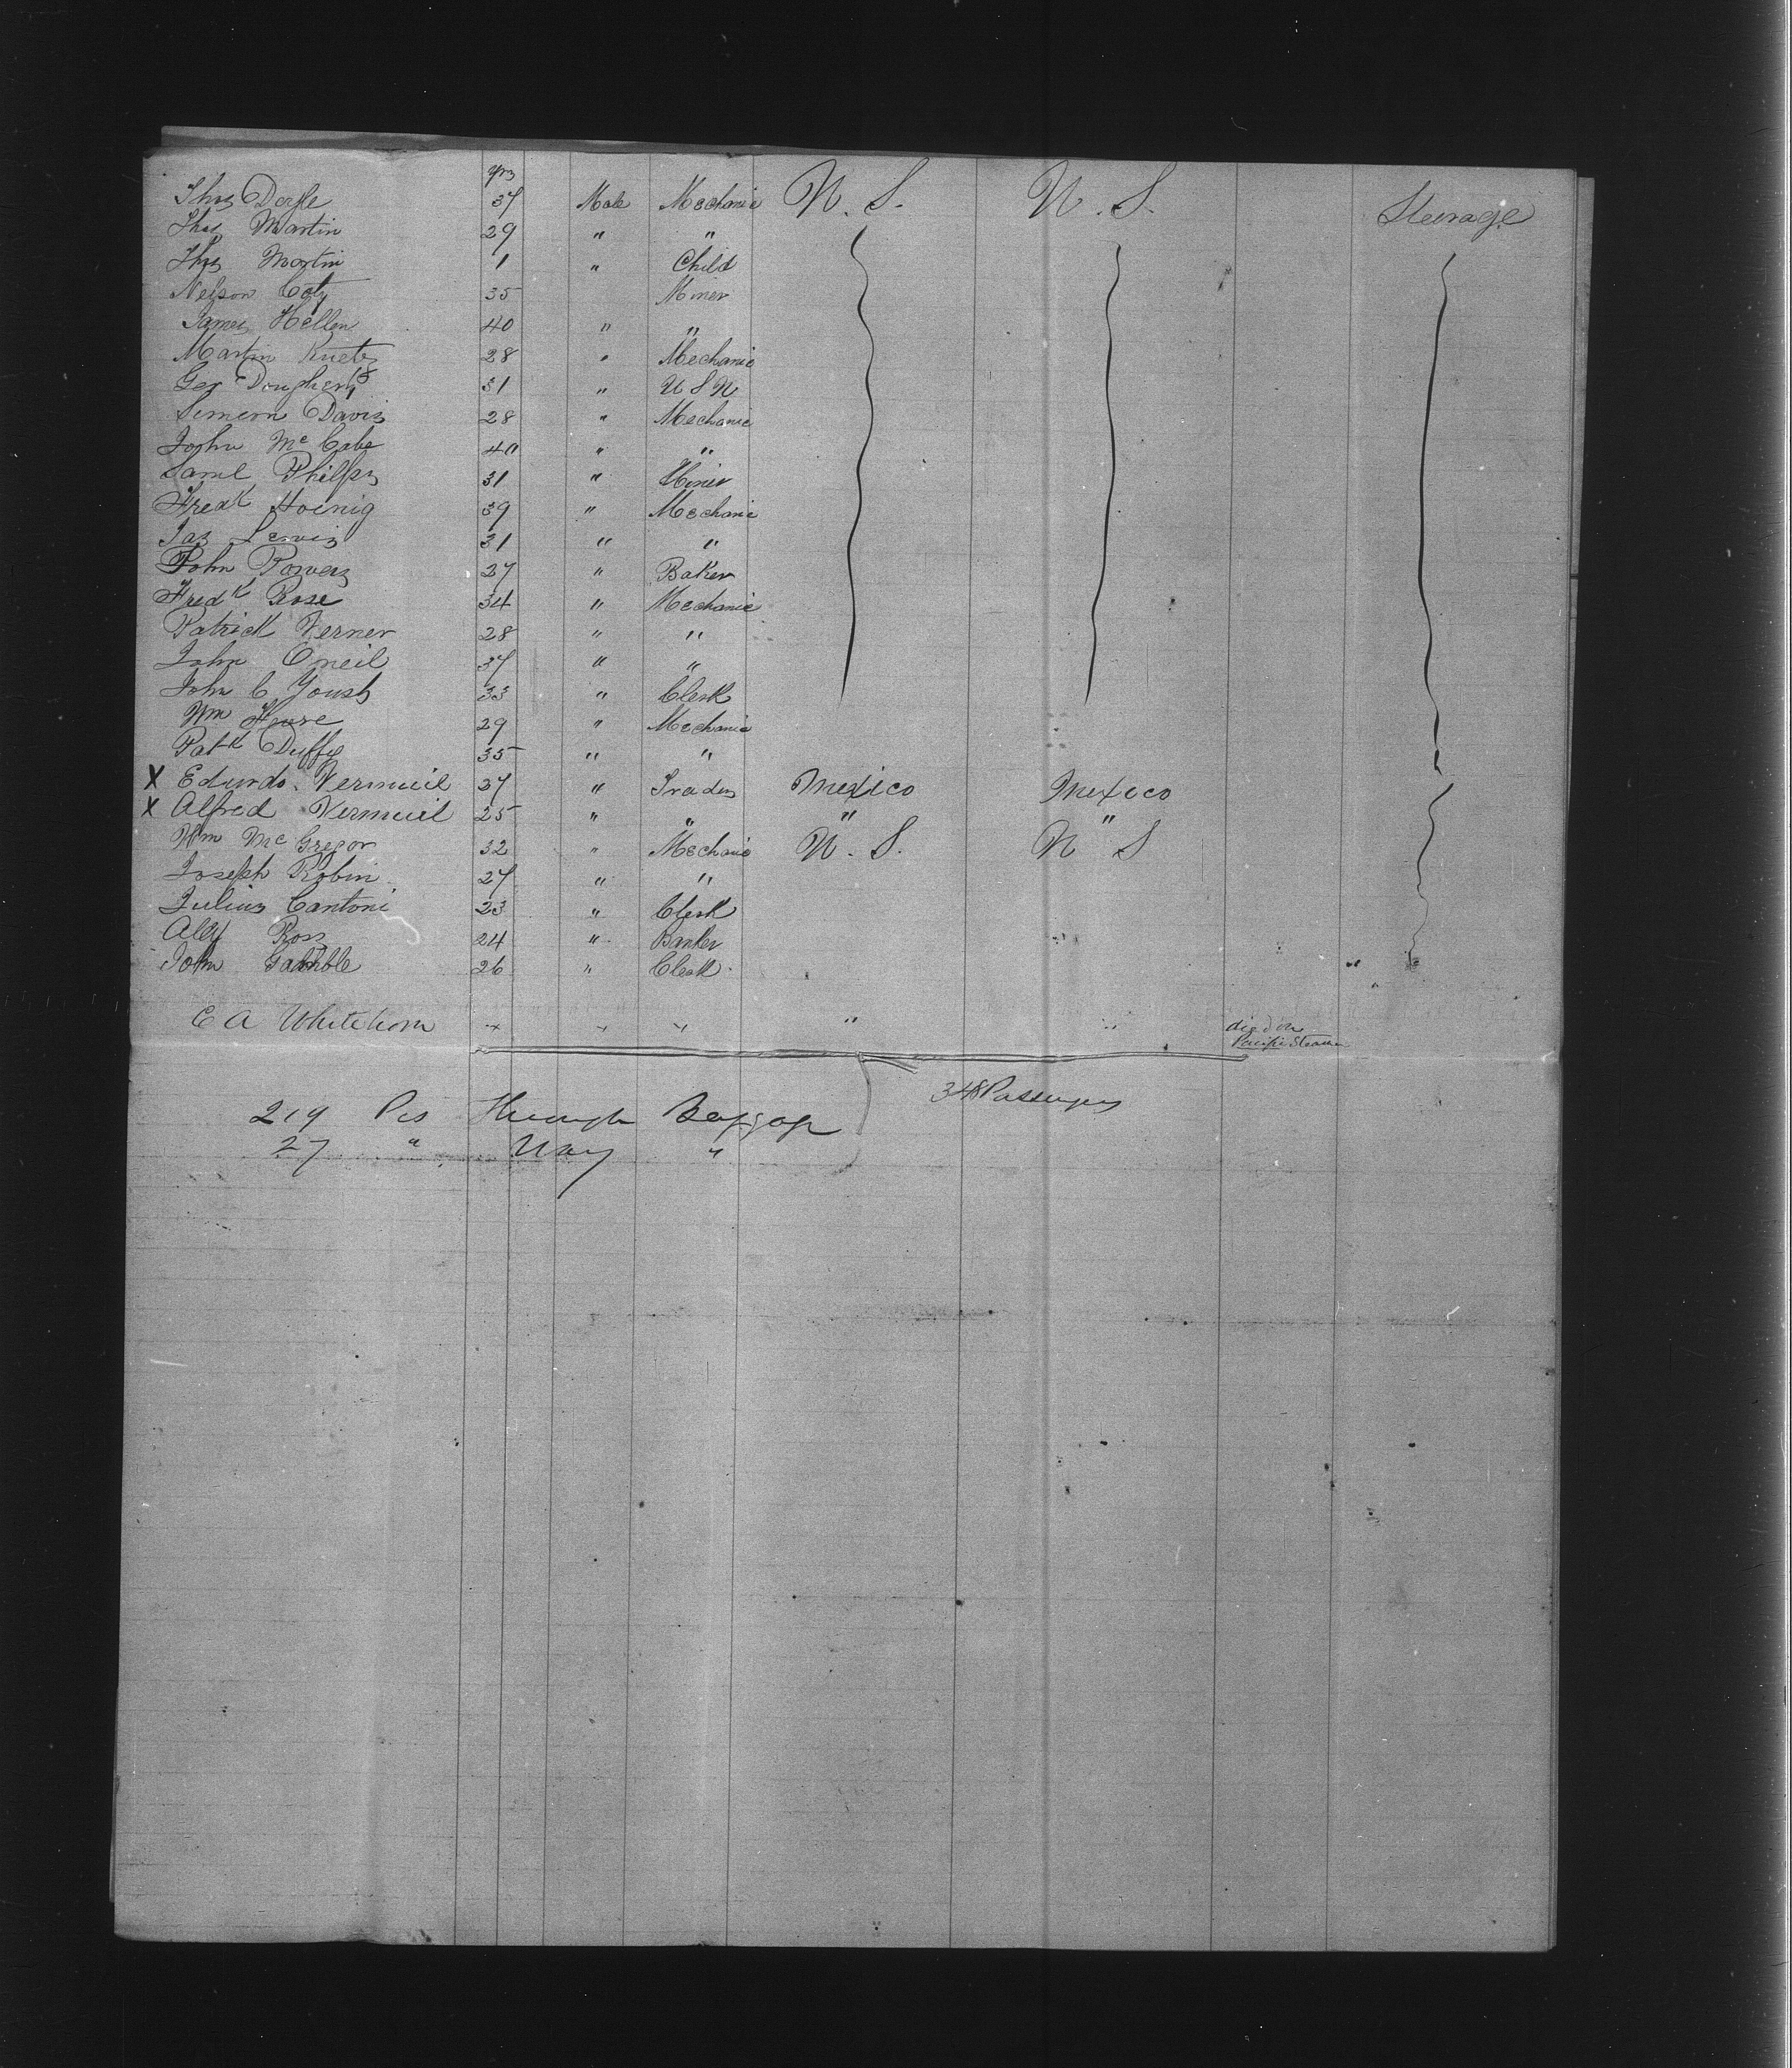 yrs
Thos Doyle 37 Male Mechanic U. S. U. S. Steerage
Thos Martin 29 " "
Thos Martin 1 " Child
Nelson Coty 35 Miner
James Hellen 40 " "
Martin Kuetz 28 " Mechanic
Geo Dougherty 31 " U S N
Simeon Davis 28 " Mechanic
John McCabe 40 " "
Saml Philips 31 " Miner
Fredk Hoenig 39 " Mechanic
Jas Lewis 31 " "
John Powers 27 " Baker
Fredk Rose 34 " Mechanic
Patrick Verner 28 " "
John Oneil 37 " "
John C Yousb 33 " Clerk
Wm 29 " Mechanic
Patk Duffy 35 " "
X Edurdo Vermueil 37 " Trader Mexico Mexico
X Alfred Vermueil 25 " " " "
Wm McGregor 32 " Mechanic U. S. U S
Joseph Robin 27 " "
Julius Cantoni 23 " Clerk
Alex Ross 24 " Banker
John Gamble 26 " Clerk
E A Whitehorn " " " " " died on
Pacific Steamer
348 Passengers
219 Pcs Through Baggage
27 " Way "